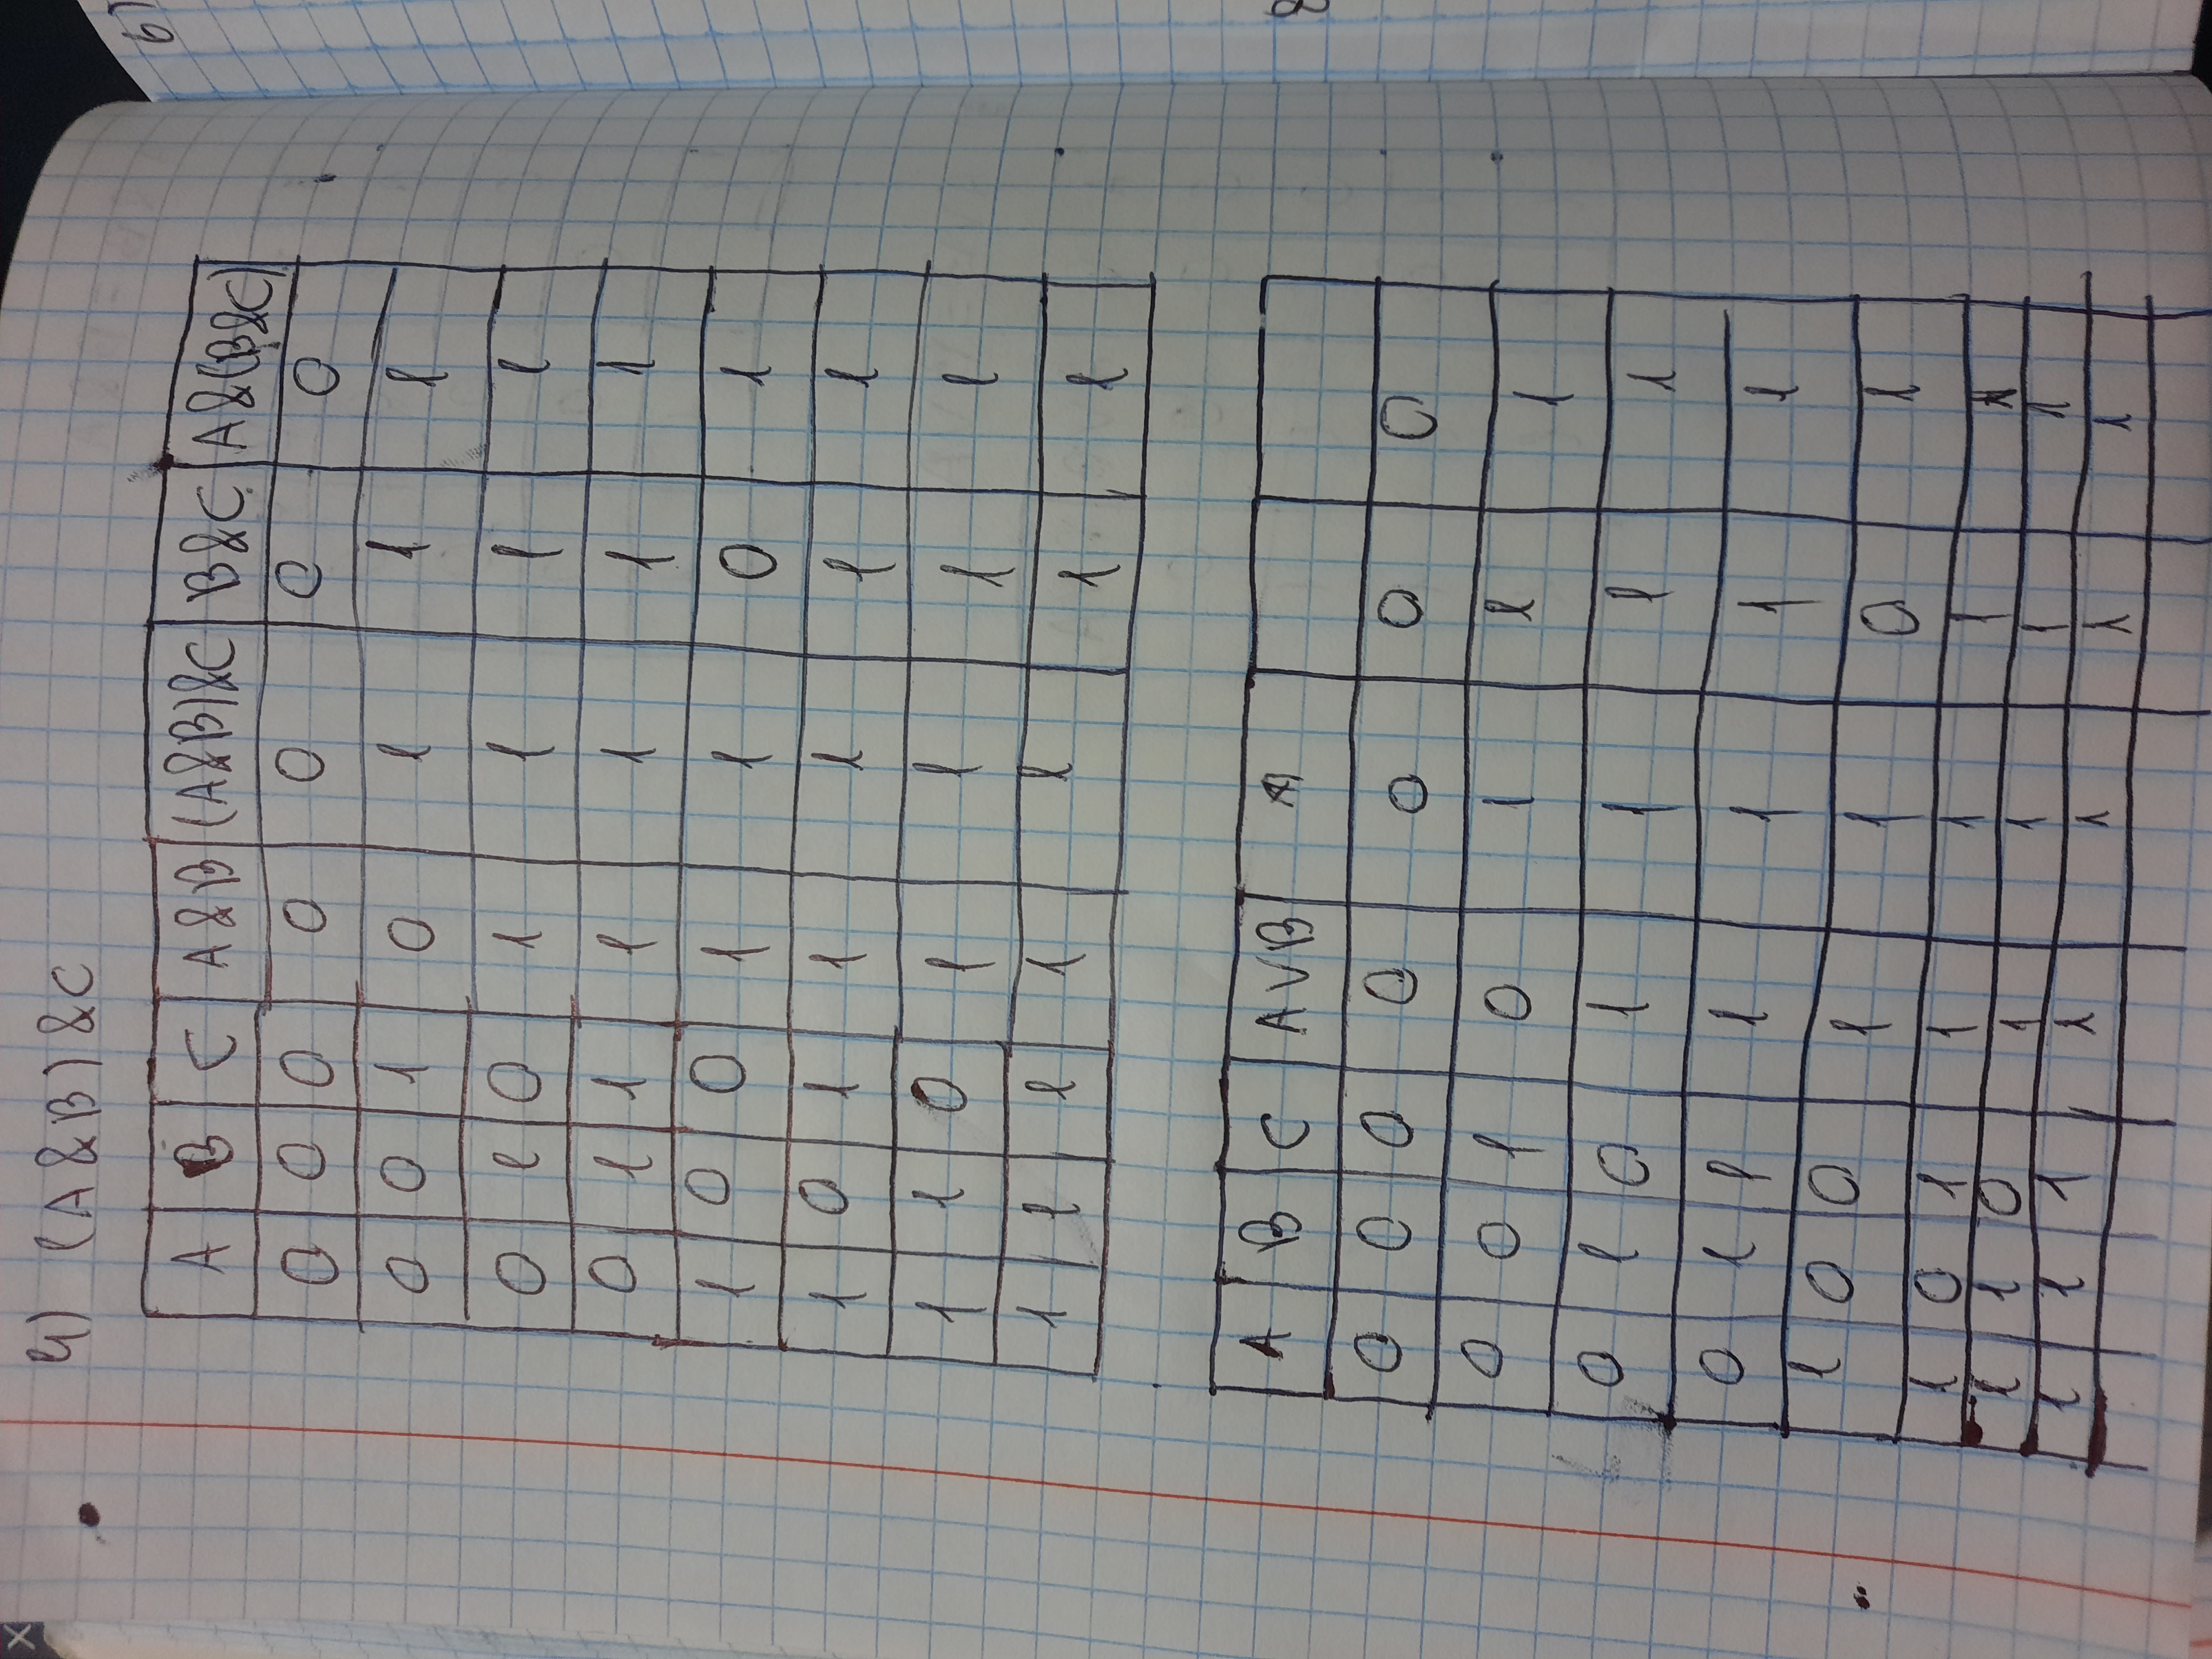 4) (A&B)&C
A B C A&B (A&B)&C B&C A&(B&C)
0 0 0 0 0 0 0
0 0 1 0 1 1 1
0 1 0 1 1 1 1
0 1 1 1 1 1 1
1 0 0 1 1 0 1
1 0 1 1 1 1 1
1 1 0 1 1 1 1
1 1 1 1 1 1 1
A B C AVB
0 0 0 0 0 0 0
0 0 1 0 1 1 1
0 1 0 1 1 1 1
0 1 1 1 1 1 1
1 0 0 1 1 0 1
1 0 1 1 1 1 1
1 1 0 1 1 1 1
1 1 1 1 1 1 1